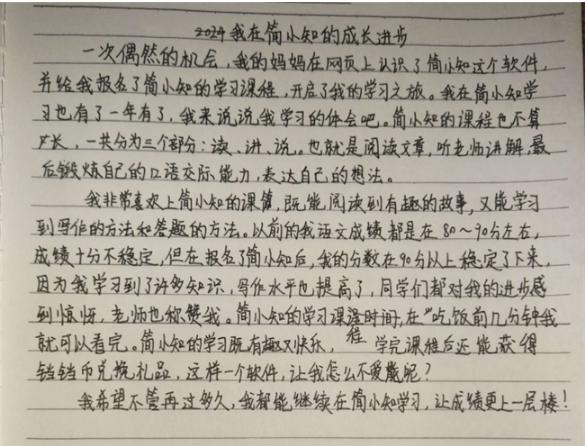 2024我在简小知的成长进步
一次偶然的机会,我的妈妈在网页上认识了简小知这个软件,
并给我报名了简小知的学习课程,开启了我的学习之旅。我在简小知学
习也有了一年有了,我来说说我学习的体会吧。简小知的课程也不算
长,一共分为三个部分:读、讲、说。也就是阅读文章,听老师讲解,最
后锻炼自己的口语交际能力,表达自己的想法。
我非常喜欢上简小知的课,既能阅读到有趣的故事,又能学习
到写作的方法和答题的方法。以前的我语文成绩都是在80~90分左右,
成绩十分不稳定,但在报名了简小知后,我的分数在90分以上稳定了下来,
因为我学习到了许多知识,写作水平也提高了,同学们都对我的进步感
到惊讶,老师也称赞我。简小知的学习课时间,在吃饭前几分钟我
就可以看完。简小知的学习既有趣又快乐,程 学完课程后还能获得
铛铛币兑换礼品,这样一个软件,让我怎么不爱呢?
我希望不管再过多久,我都能继续在简小知学习,让成绩更上一层楼!